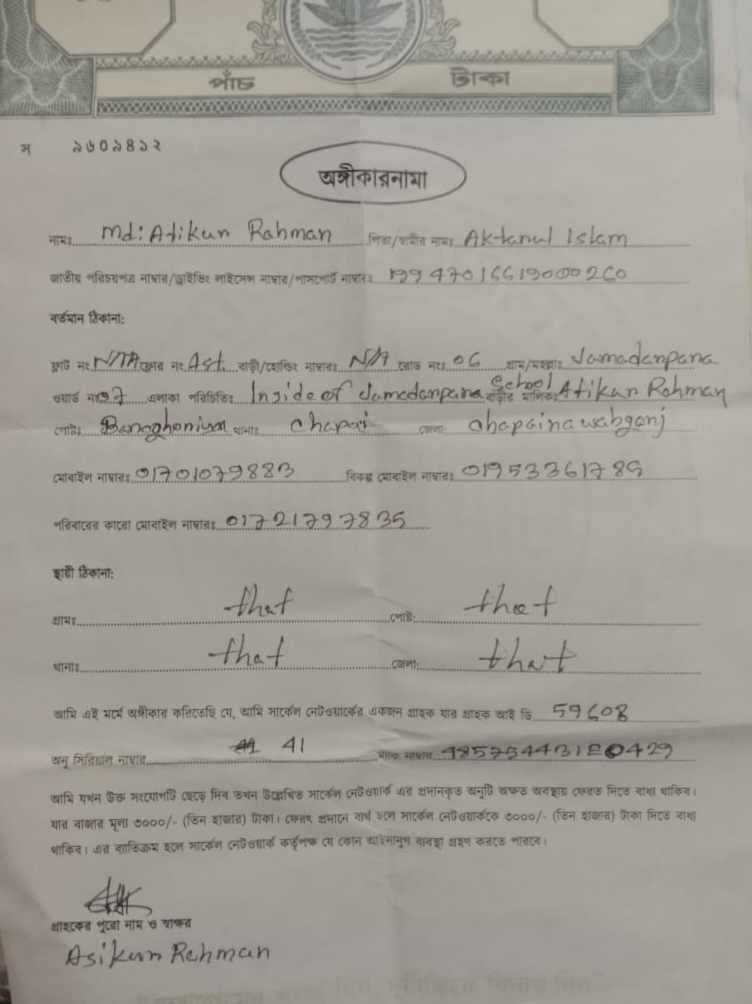 পাঁচ টাকা
স ৯৬০৯৪১২
অঙ্গীকারনামা
নামঃ Md: Atikur Rahman পিতা/স্বামীর নামঃ Aktarul Islam
জাতীয় পরিচয়পত্র নাম্বার/ড্রাইভিং লাইসেন্স নাম্বার/পাসপোর্ট নাম্বারঃ 19947016619000260
বর্তমান ঠিকানা:
ফ্লাট নং N/A ফ্লোর নং Ast. বাড়ী/হোল্ডিং নাম্বারঃ N/A রোড নংঃ 06 গ্রাম/মহল্লাঃ Jamadarpara
ওয়ার্ড নং 07 এলাকা পরিচিতিঃ Inside of Jamadarpara School বাড়ীর মালিকঃ Atikur Rahman
পোষ্টঃ থানাঃ Chapai জেলা: Chapainawabganj
মোবাইল নাম্বারঃ 01701079883 বিকল্প মোবাইল নাম্বারঃ 01953361786
পরিবারের কারো মোবাইল নাম্বারঃ 01721797835
স্থায়ী ঠিকানা:
গ্রামঃ that পোষ্ট: that
থানাঃ that জেলা: that
আমি এই মর্মে অঙ্গীকার করিতেছি যে, আমি সার্কেল নেটওয়ার্কের একজন গ্রাহক যার গ্রাহক আই ডি 59608
অনু সিরিয়াল নাম্বার 41 ম্যাক নাম্বার 485754431E0429
আমি যখন উক্ত সংযোগটি ছেড়ে দিব তখন উল্লেখিত সার্কেল নেটওয়ার্ক এর প্রদানকৃত অনুটি অক্ষত অবস্থায় ফেরত দিতে বাধ্য থাকিব।
যার বাজার মূল্য ৩০০০/- (তিন হাজার) টাকা। ফেরৎ প্রদানে ব্যর্থ হলে সার্কেল নেটওয়ার্ককে ৩০০০/- (তিন হাজার) টাকা দিতে বাধ্য
থাকিব। এর ব্যতিক্রম হলে সার্কেল নেটওয়ার্ক কর্তৃপক্ষ যে কোন আইনানুগ ব্যবস্থা গ্রহণ করতে পারবে।
গ্রাহকের পুরো নাম ও স্বাক্ষর
Asikur Rahman